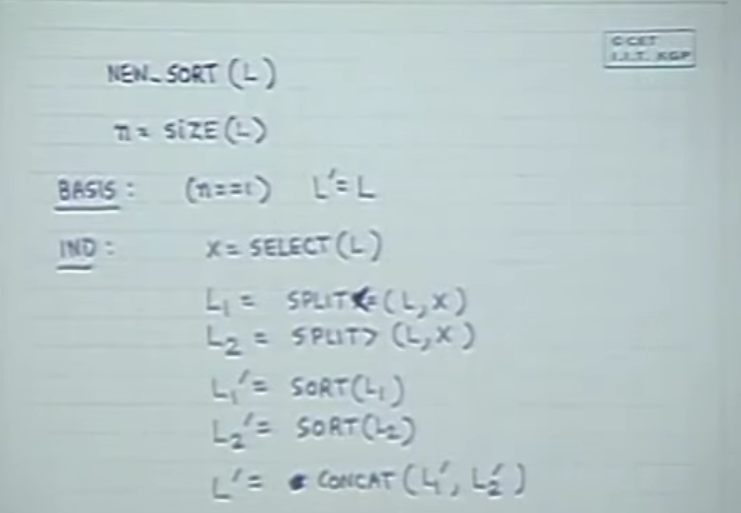 © CET
I.I.T. KGP
NEW_SORT (L)
n = SIZE(L)
BASIS : (n==1) L'=L
IND : X = SELECT(L)
L₁ = SPLIT<=(L,X)
L₂ = SPLIT> (L,X)
L₁' = SORT(L₁)
L₂' = SORT(L₂)
L' = CONCAT(L₁', L₂')